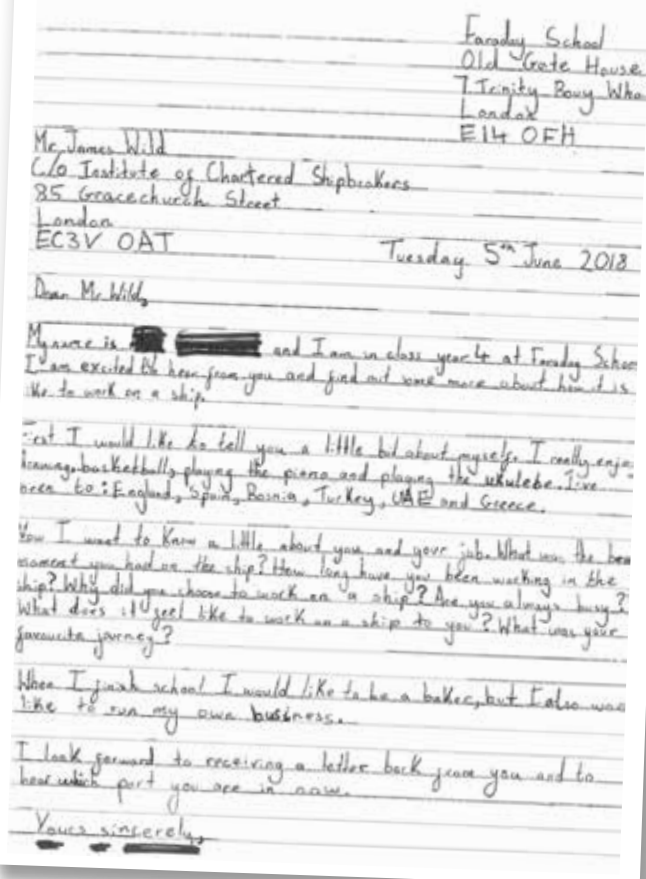 Faraday School
Old Gate House
7 Trinity Bouy Wha
London
E14 0FH
Mr James Wild
C/o Institute of Chartered Shipbrokers
85 Gracechurch Street
London
EC3V 0AT
Tuesday 5th June 2018
Dear Mr Wild,
My name is and I am in class year 4 at Faraday Schoo
I am excited to hear from you and find out some more about how it is
like to work on a ship.
First I would like to tell you a little bit about myself. I really enjo
drawing, basketball, playing the piano and playing the ukulele. I've
been to: England, Spain, Bosnia, Turkey, UAE and Greece.
Now I want to know a little about you and your job. What was the bes
moment you had on the ship? How long have you been working in the
ship? Why did you choose to work on a ship? Are you always busy?
What does it feel like to work on a ship to you? What was your
favourite journey?
When I finish school I would like to be a baker, but I also wou
like to run my own business.
I look forward to receiving a letter back from you and to
hear which port you are in now.
Yours sincerely,